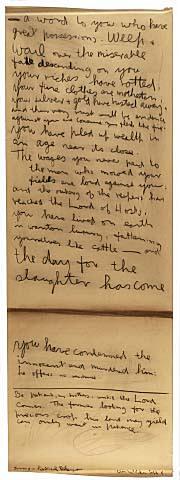 — a word to you who have
great possessions. Weep &
wail over the miserable
fate descending on you
your riches have rotted,
your fine clothes are motheaten
your silver & gold have rusted away,
and their very rust will be evidence
against you and consume your flesh like fire.
you have piled up wealth in
an age near its close.
The wages you never paid to
the men who mowed your
fields are loud against you.
and the outcry of the reapers has
reached the Lord of Hosts.
you have lived on earth
in wanton luxury, fattening
yourselves like cattle — and
the day for the
slaughter has come
you have condemned the
innocent and murdered him:
he offers no resistance
Be patient, my brothers, until the Lord
comes. The farmer looking for the
precious crop his land may yield
can only wait in patience.